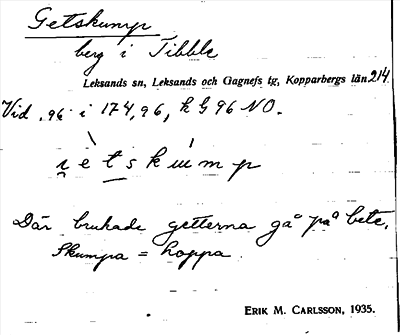 Getskump
berg i Tibble
Leksands sn, Leksands och Gagnefs tg, Kopparbergs län 214
Vid .96 i 174,96, h G 96 NO.
Där brukade getterna gå på bete.
Skumpa = hoppa.
ERIK M. CARLSSON, 1935.